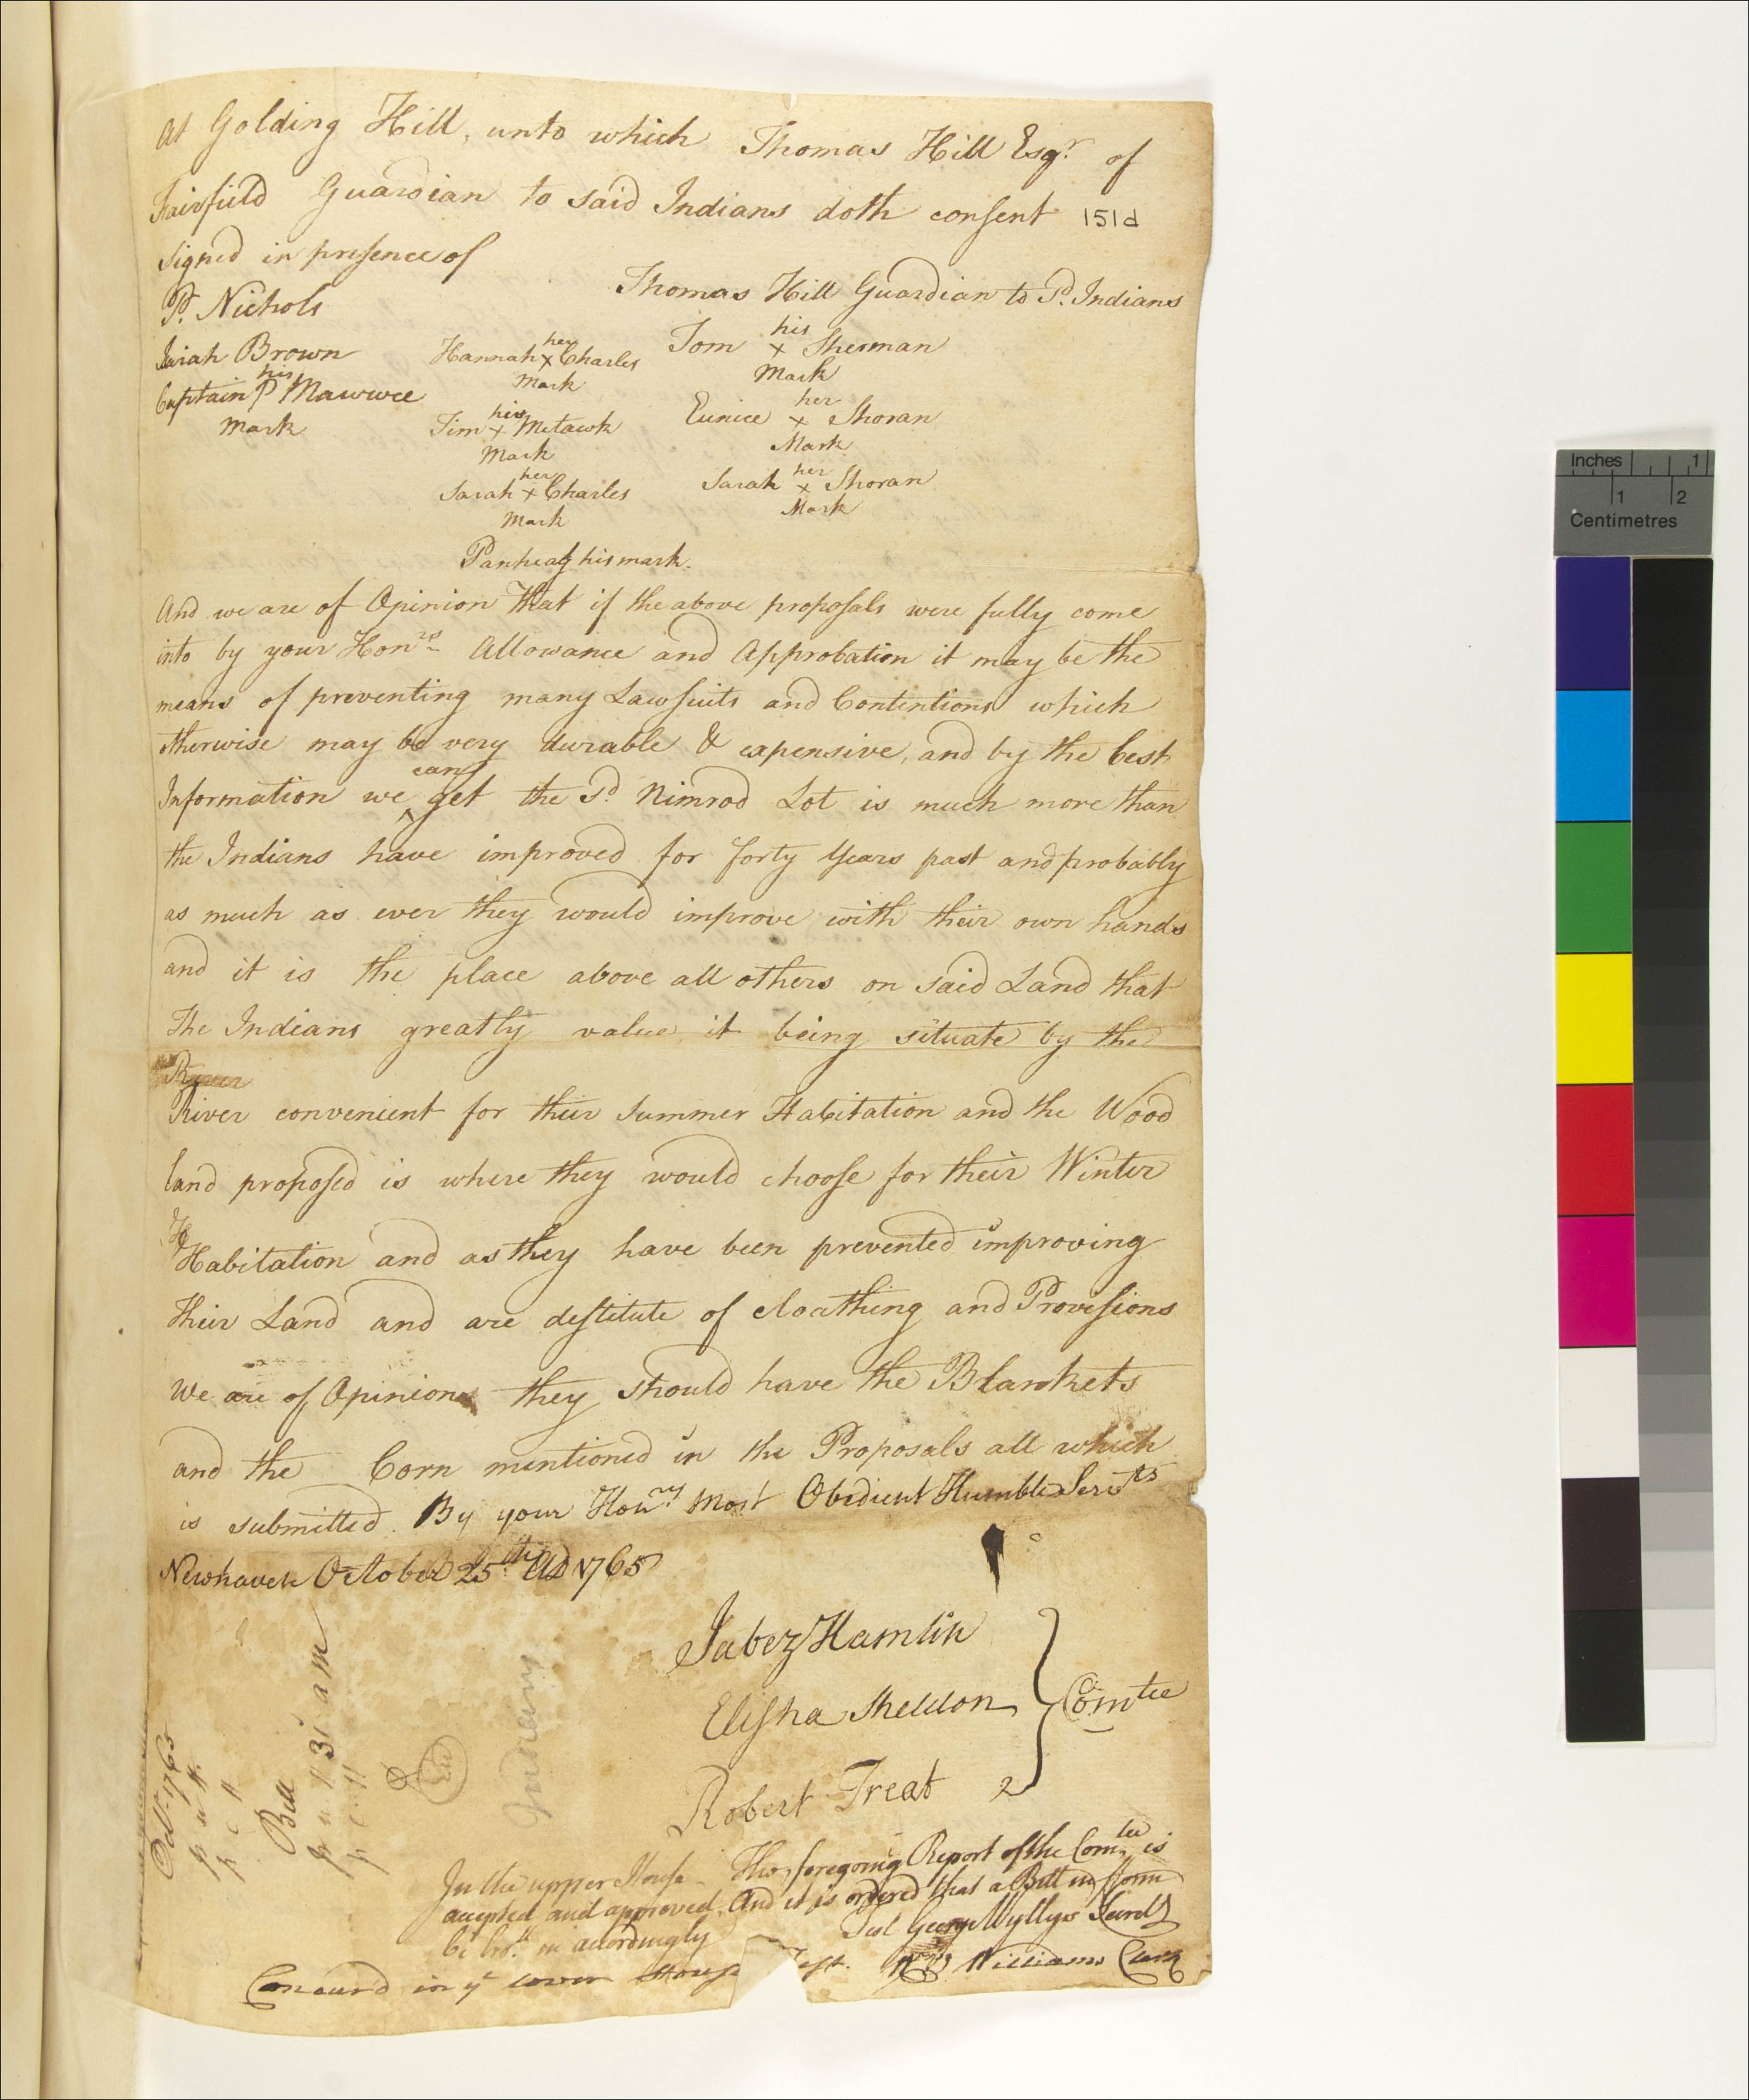 At Golding Hill, unto which Thomas Hill Esqr. of
Fairfield Guardian to said Indians doth consent
151d
signed in presence of
Thomas Hill Guardian to sd. Indians
P. Nichols
Isaiah Brown
Captain his P Mawwee
mark
Hannah her x Charles
Mark
Tom his x Sherman
Mark
Jim his x Metawk
Mark
Eunice her x Shoran
Mark
Sarah her x Charles
Mark
Sarah her x Shoran
Mark
Panheag his mark.
And we are of Opinion That if the above proposals were fully come
into by your Honrs Allowance and Approbation it may be the
means of preventing many Lawsuits and Contentions which
otherwise may be very durable & expensive, and by the best
Information we ^can get the sd Nimrod Lot is much more than
the Indians have improved for forty Years past and probably
as much as ever they would improve with their own hands
and it is the place above all others on said Land that
the Indians greatly value it being situate by the
River convenient for their Summer Habitation and the Wood
land proposed is where they would choose for their Winter
Habitation and as they have been prevented improving
their Land and are destitute of cloathing and Provisions
We are of Opinion they should have the Blankets
and the Corn mentioned in the Proposals all which
is submitted. By your Honrs Most Obedient Humble Servts
Newhaven October 25th AD 1765
Jabez Hamlin
Elisha Sheldon
Comtee
Robert Treat 2
Octr. 1765
Bill
Indians
In the upper House The foregoing Report of the Comtee is
accepted and approved, And it is ordered that a Bill in form
be bro't in accordingly
Test George Wyllys Secret
Concur'd in ye lower House
Test. Wm Williams Clerk
Inches 1
1 2
Centimetres